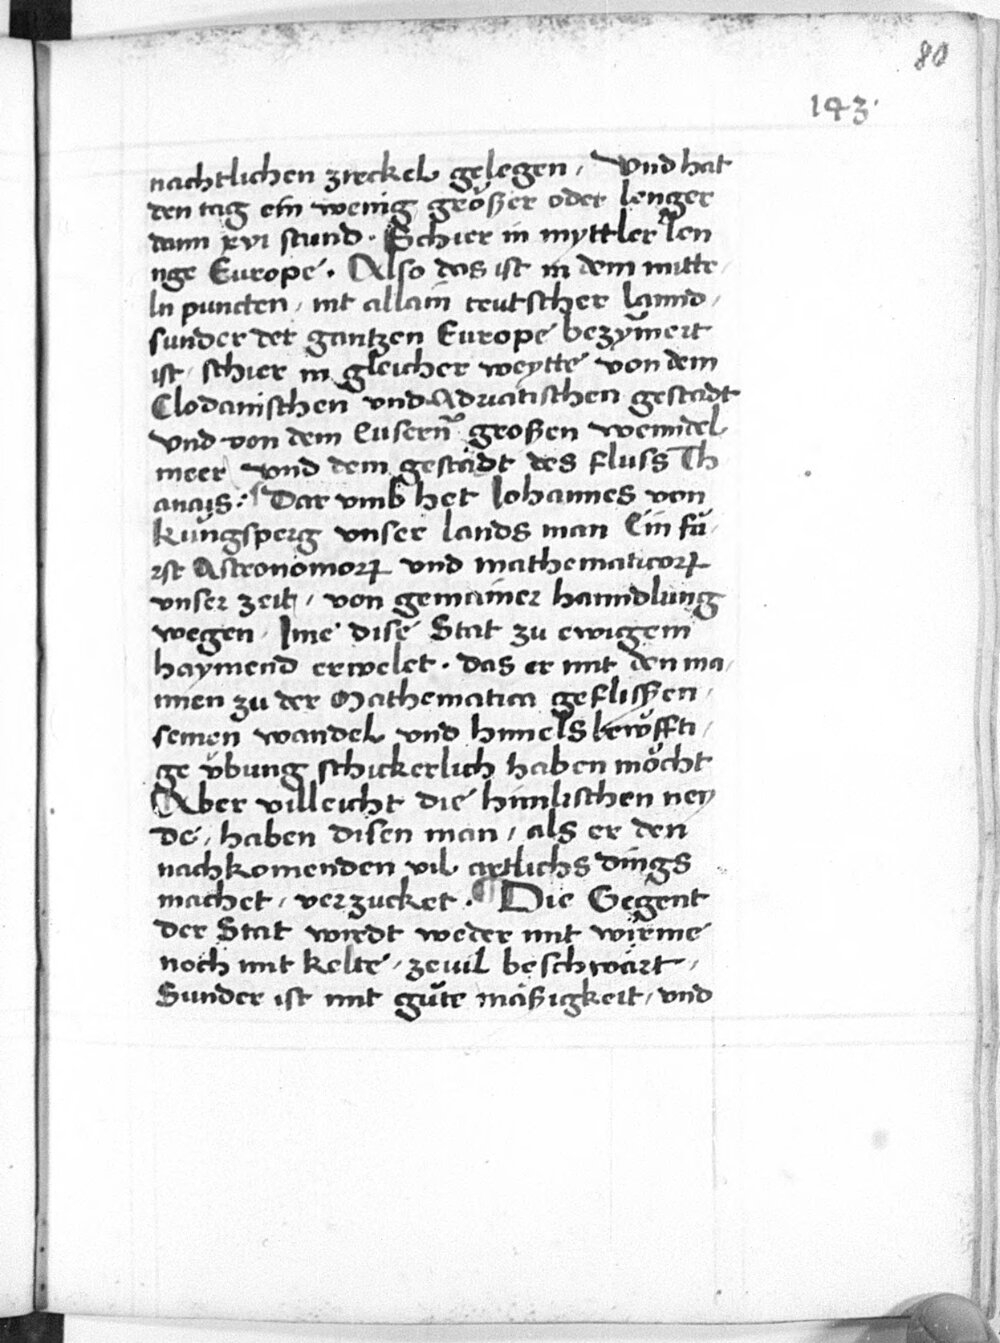 80
143.
nachtlichen zirckel gelegen, Vnd hat
den tag ein wenig grŏßer oder lenger
dann xvi stund. Schier in myttler len
nge Europe. Also das ist in dem mitte,
ln puncten, nit allain teutscher lannd,
sunder der gantzen Europe bezÿmert
ist, schier in gleicher weytte von dem
Clodanischen vnd Adriatischen gestadt
Vnd von dem Eusern̄ großen wenndel
meer Vnd dem gestadt des fluss Th
anais: Dar vmb het Iohannes von
kŭngsperg vnser lands man Ein fŭ,
rst Astronomorꝝ vnd mathematicorꝝ
vnser zeit, von gemainer hanndlung
wegen, Ime dise Stat zu ewigem
haymend erwelet. das er mit den ma,
nnen zu der Mathematica geflißen,
seinen wandel vnd himels lewffti,
ge ŭbung schickerlich haben mŏcht
Aber villeicht die himlischen ney
de, haben disen man, als er den
nachkomenden vil artlichs dings
machet, verzucket. ¶ Die Gegent
der Stat wirdt weder mit wirme
noch mit kelte, zeuil beschwärt,
Sunder ist mit gŭte mäßigkeit, vnd